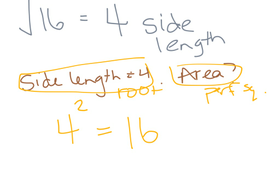 √16 = 4 side
length
Side length = 4. Area?
root perf sq.
4² = 16